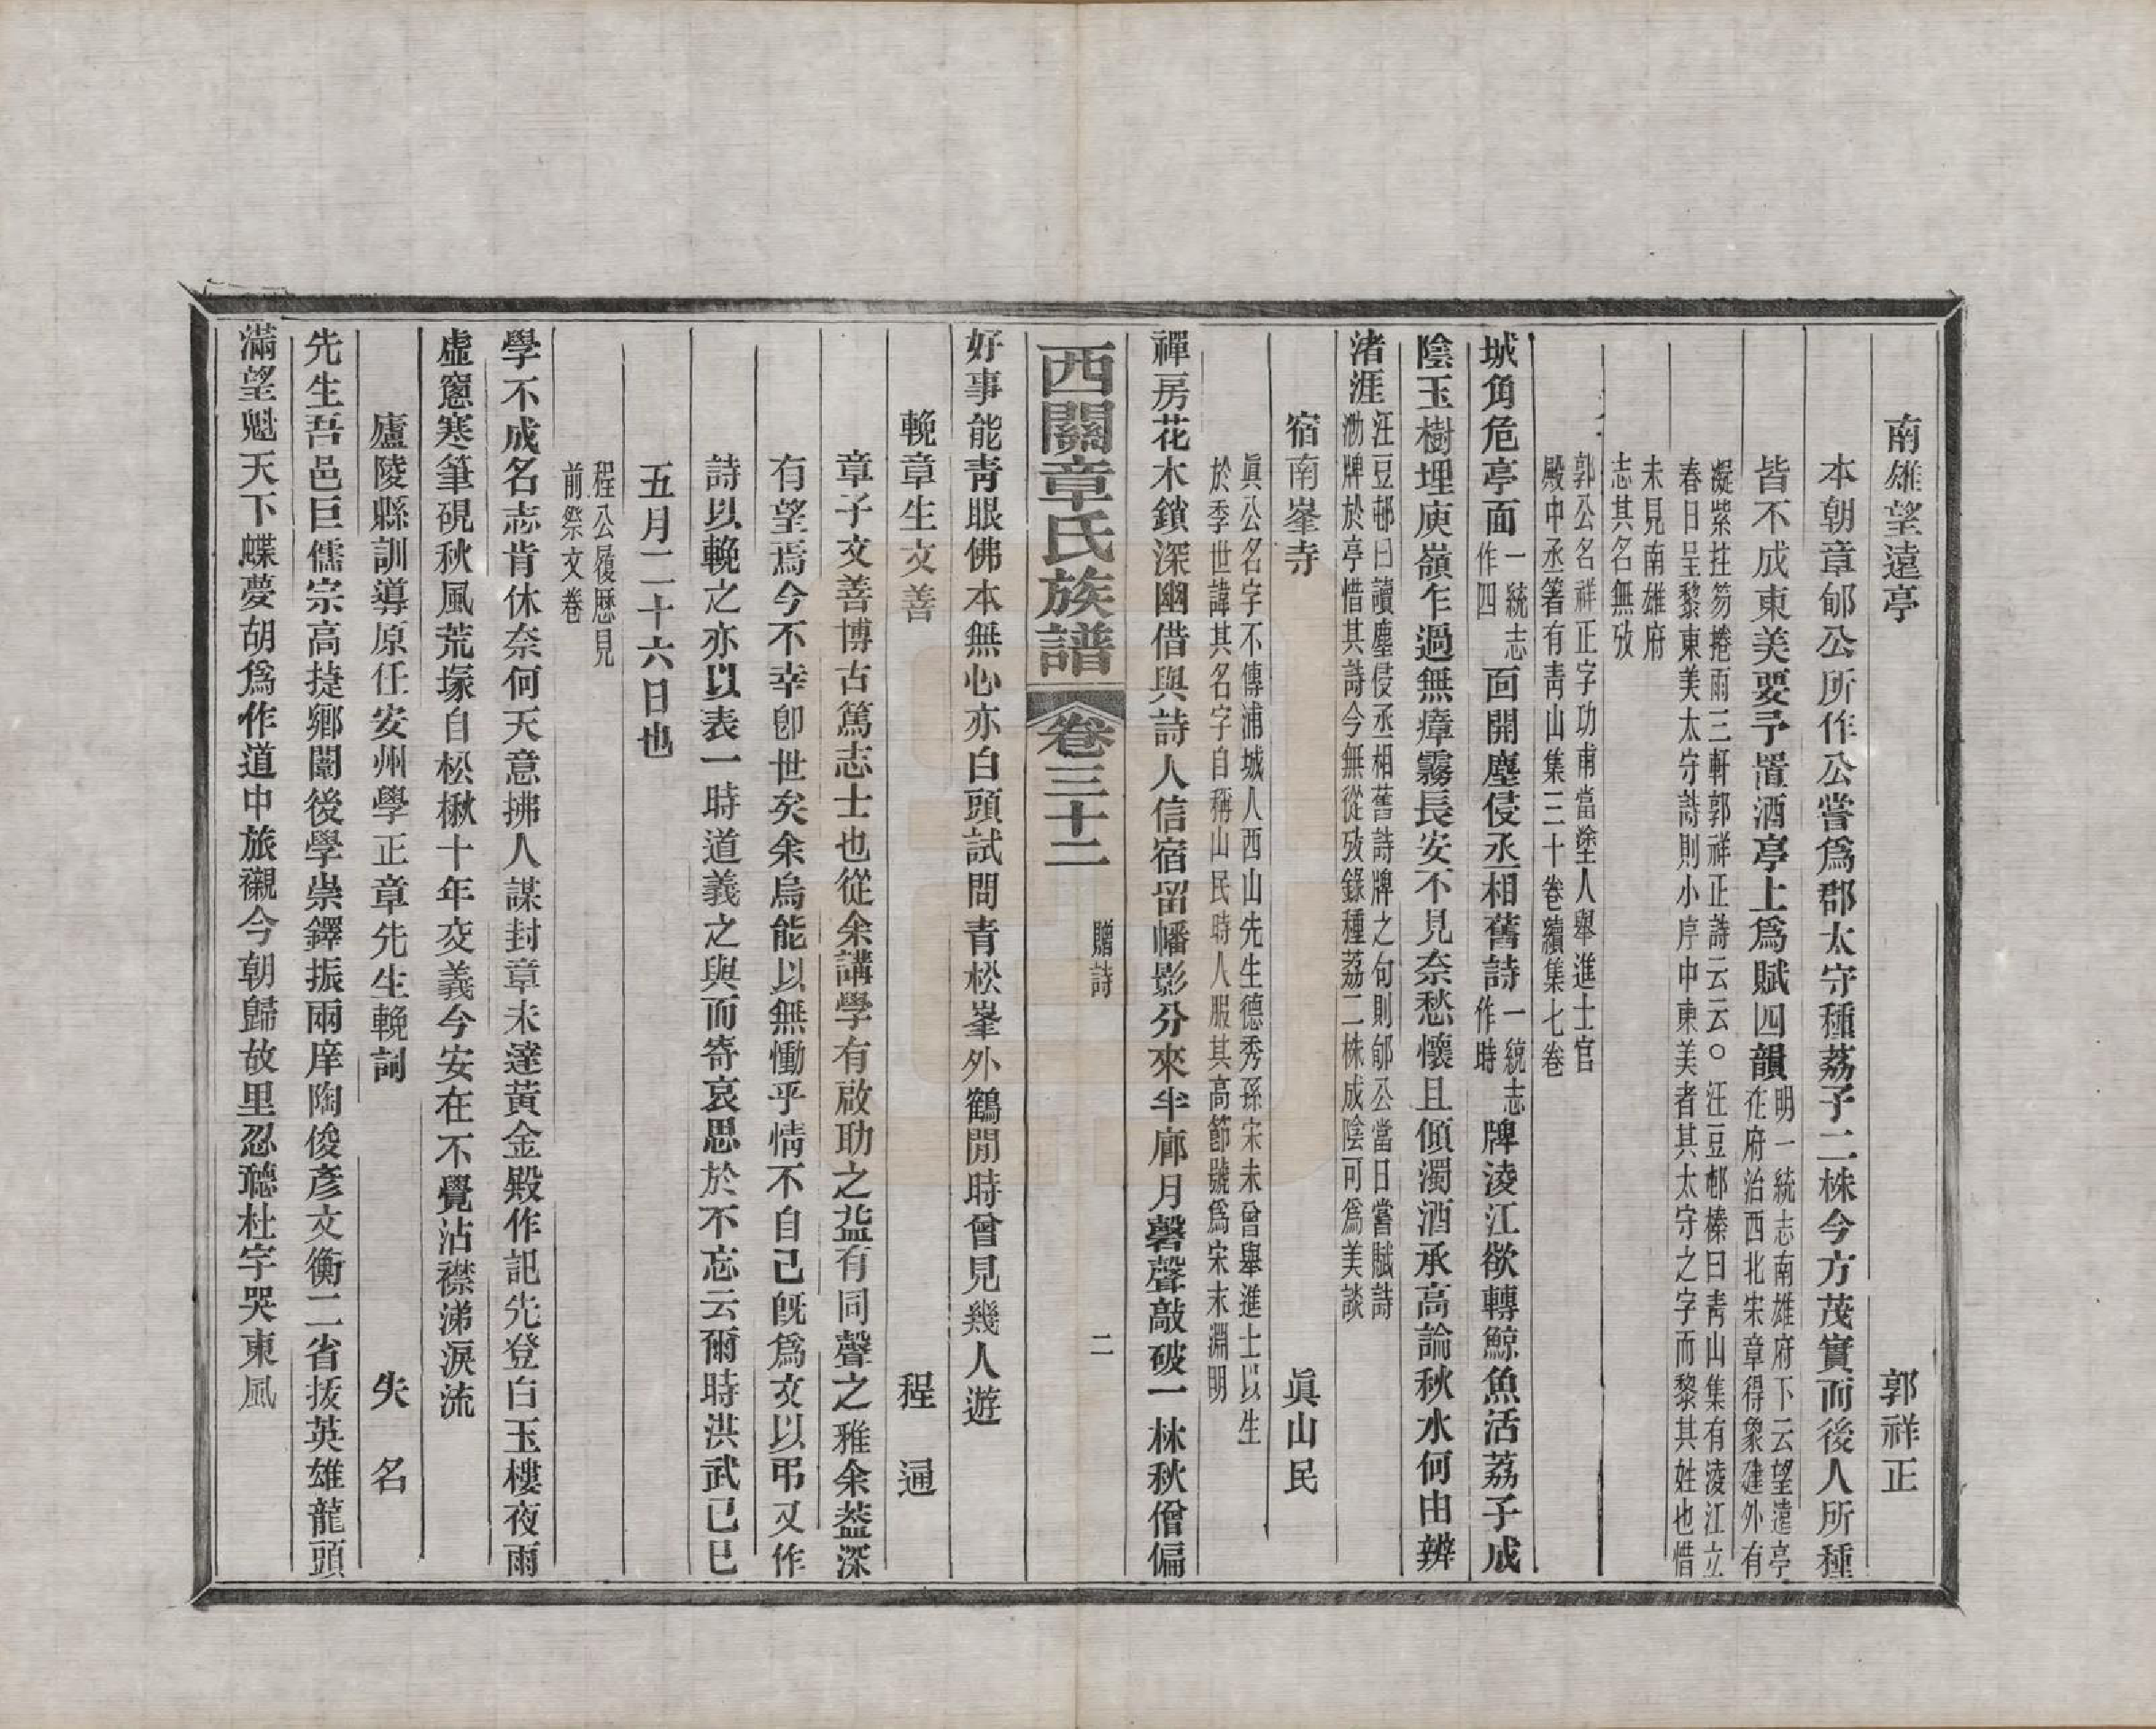 南雄望遠亭　郭祥正
本朝章郇公所作公嘗爲郡太守種荔子二株今方茂實而後人所種
皆不成東美要予置酒亭上爲賦四韻
明一統志南雄府下云望遠亭
在府治西北宋章得象建外有
凝紫拄笏捲雨三軒郭祥正詩云云○汪豆邨榛曰青山集有淩江立
春日呈黎東美太守詩則小序中東美者其太守之字而黎其姓也惜
未見南雄府
志其名無攷
郭公名祥正字功甫當塗人舉進士官
殿中丞著有靑山集三十卷續集七卷
城角危亭面
一統志
作四
面開塵侵丞相舊詩
一統志
作時
牌淩江欲轉鯨魚活荔子成
陰玉樹埋庾嶺乍過無瘴霧長安不見奈愁懷且傾濁酒承高論秋水何由辨
渚涯
汪豆邨曰讀塵侵丞相舊詩牌之句則郇公當日嘗賦詩
泐牌於亭惜其詩今無從攷錄種荔二株成陰可爲美談
宿南峯寺　眞山民
眞公名字不傳浦城人西山先生德秀孫宋末曾舉進士以生
於季世諱其名字自稱山民時人服其高節號爲宋末淵明
禪房花木鎖深幽借與詩人信宿留幡影分來半廊月磬聲敲破一林秋僧偏
西關章氏族譜　卷三十二　贈詩　二
好事能靑眼佛本無心亦白頭試問青松峯外鶴閒時曾見幾人遊
輓章生文善　程　通
章子文善博古篤志士也從余講學有啟助之益有同聲之雅余葢深
有望焉今不幸卽世矣余烏能以無慟乎情不自己旣爲文以弔又作
詩以輓之亦以表一時道義之與而寄哀思於不忘云爾時洪武己巳
五月二十六日也
程公履歷見
前祭文卷
學不成名志肯休奈何天意拂人謀封章未達黃金殿作記先登白玉樓夜雨
虛窻寒筆硯秋風荒塚自松楸十年交義今安在不覺沾襟涕淚流
廬陵縣訓導原任安州學正章先生輓詞　失　名
先生吾邑巨儒宗高捷鄉闈後學崇鐸振兩庠陶俊彥文衡二省拔英雄龍頭
滿望魁天下蝶夢胡爲作道中旅櫬今朝歸故里忍聽杜宇哭東風